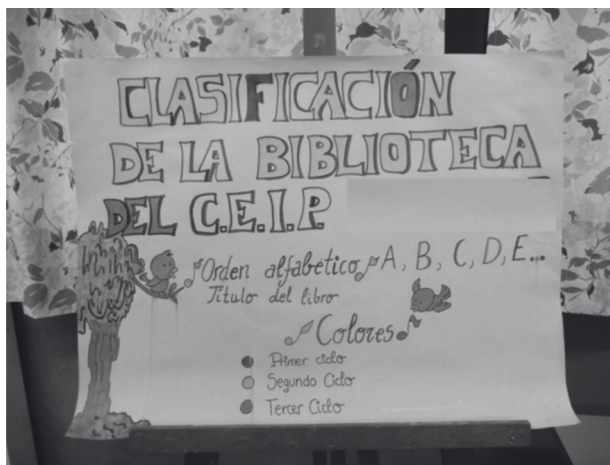 CLASIFICACIÓN
DE LA BIBLIOTECA
DEL C.E.I.P.
Orden alfabético A, B, C, D, E...
Título del libro
Colores
Primer ciclo
Segundo Ciclo
Tercer Ciclo